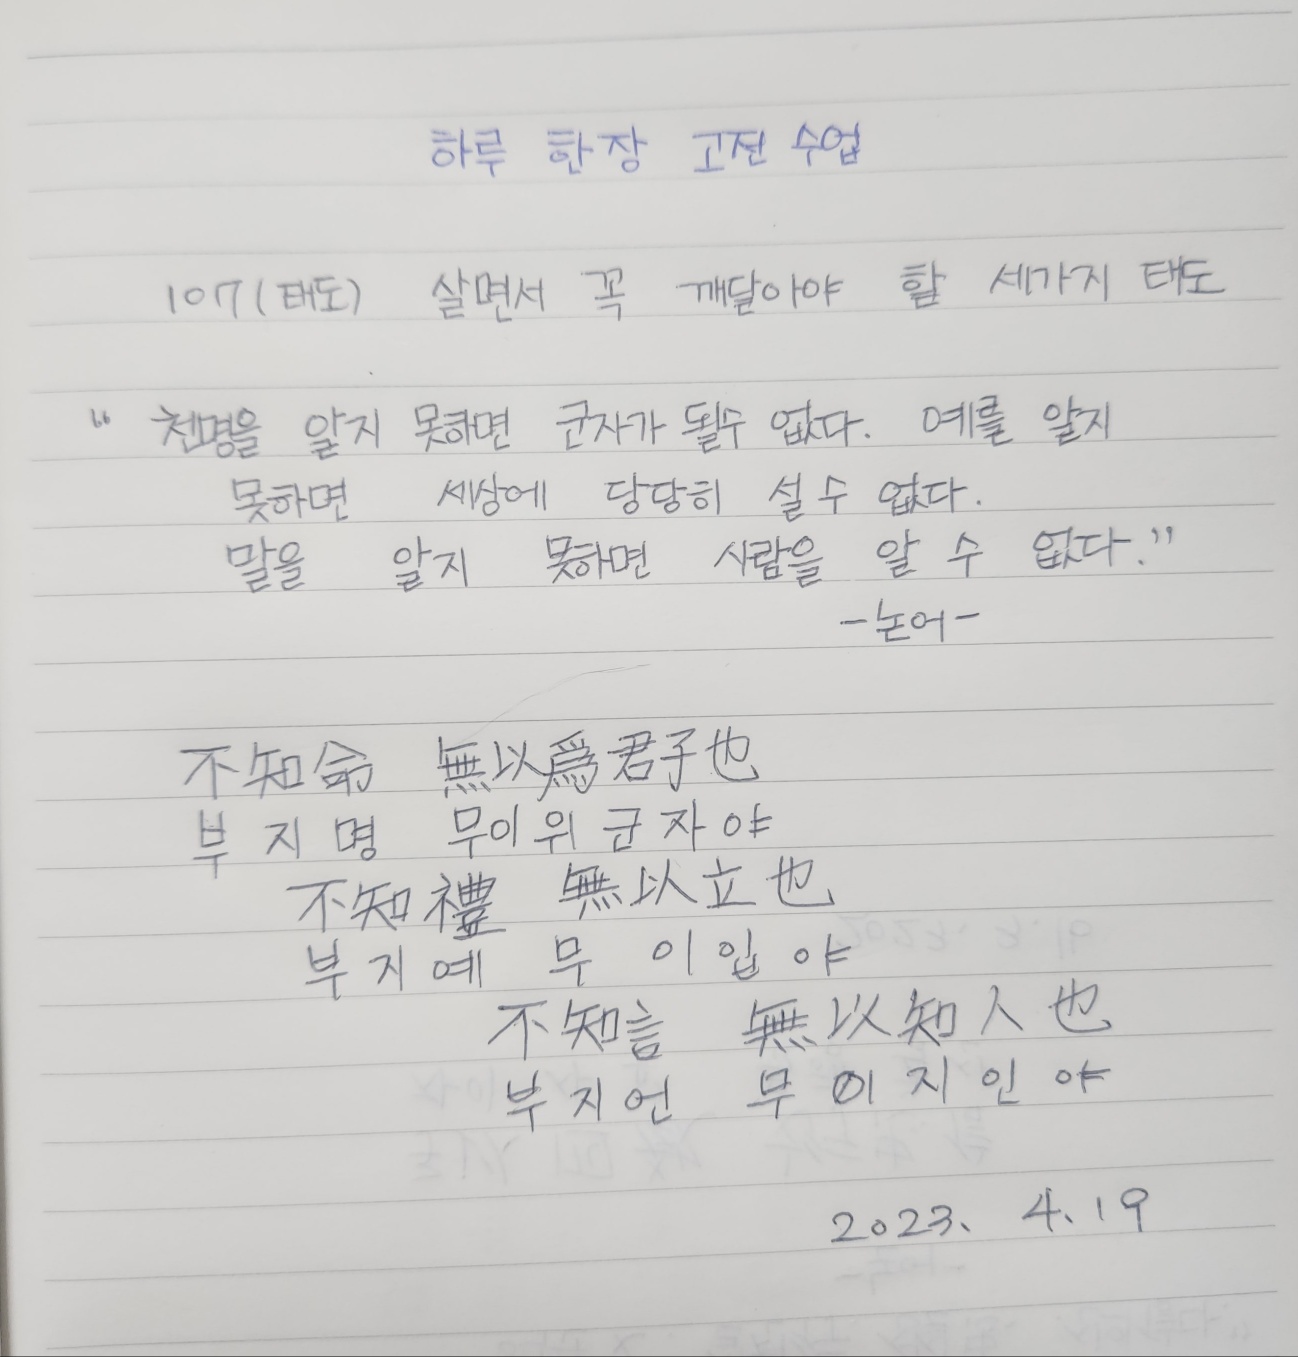 하루 한장 고전 수업
107(태도) 살면서 꼭 깨달아야 할 세가지 태도
“ 천명을 알지 못하면 군자가 될수 없다. 예를 알지
못하면 세상에 당당히 설 수 없다.
말을 알지 못하면 사람을 알 수 없다.”
-논어-
不知命 無以爲君子也
부지명 무이위군자야
不知禮 無以立也
부지예 무이입야
不知言 無以知人也
부지언 무이지인야
2023. 4. 19